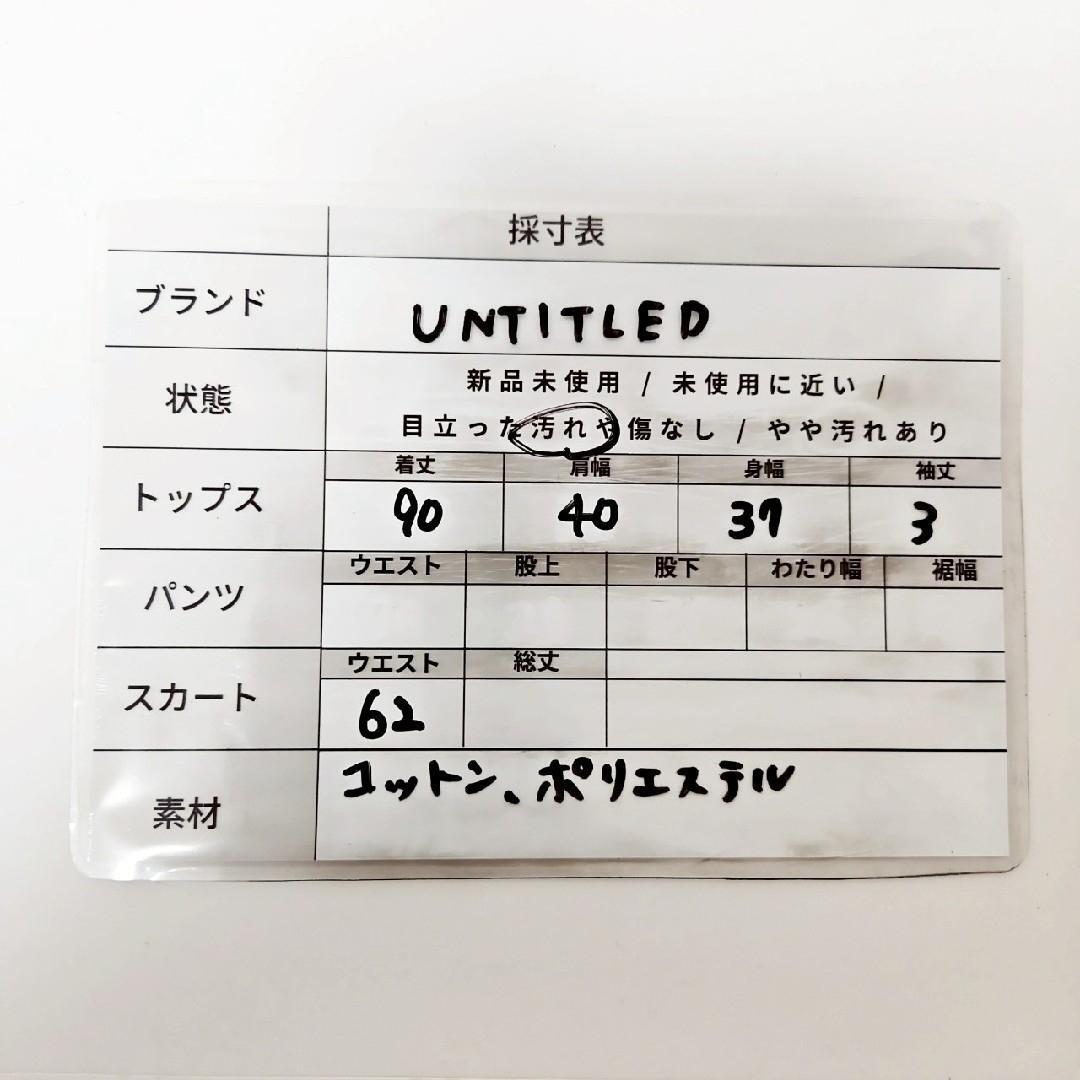 採寸表
ブランド
UNTITLED
状態
新品未使用 / 未使用に近い /
目立った汚れや傷なし / やや汚れあり
トップス
着丈 肩幅 身幅 袖丈
90 40 37 3
パンツ
ウエスト 股上 股下 わたり幅 裾幅
スカート
ウエスト 総丈
62
素材
コットン、ポリエステル